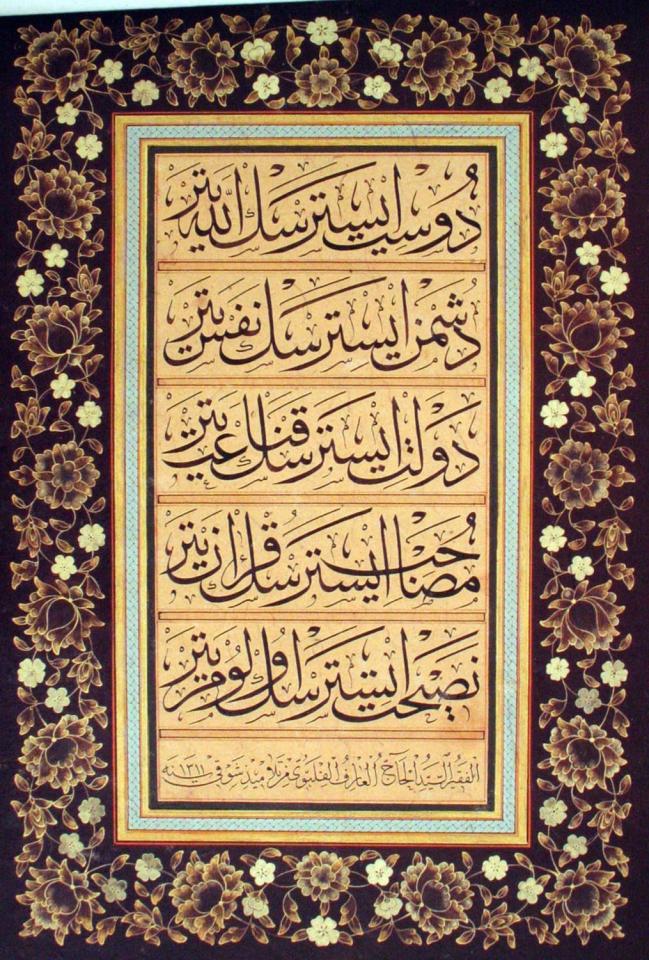 دوست ایسترسك الله یتر
دشمن ایسترسك نفس یتر
دولت ایسترسك قناعت یتر
مصاحب ایسترسك قرآن یتر
نصیحت ایسترسك اولوم یتر
الفقیر السید الحاج العارف الفلبوی من تلامیذ شوقی سنه ١٣١١